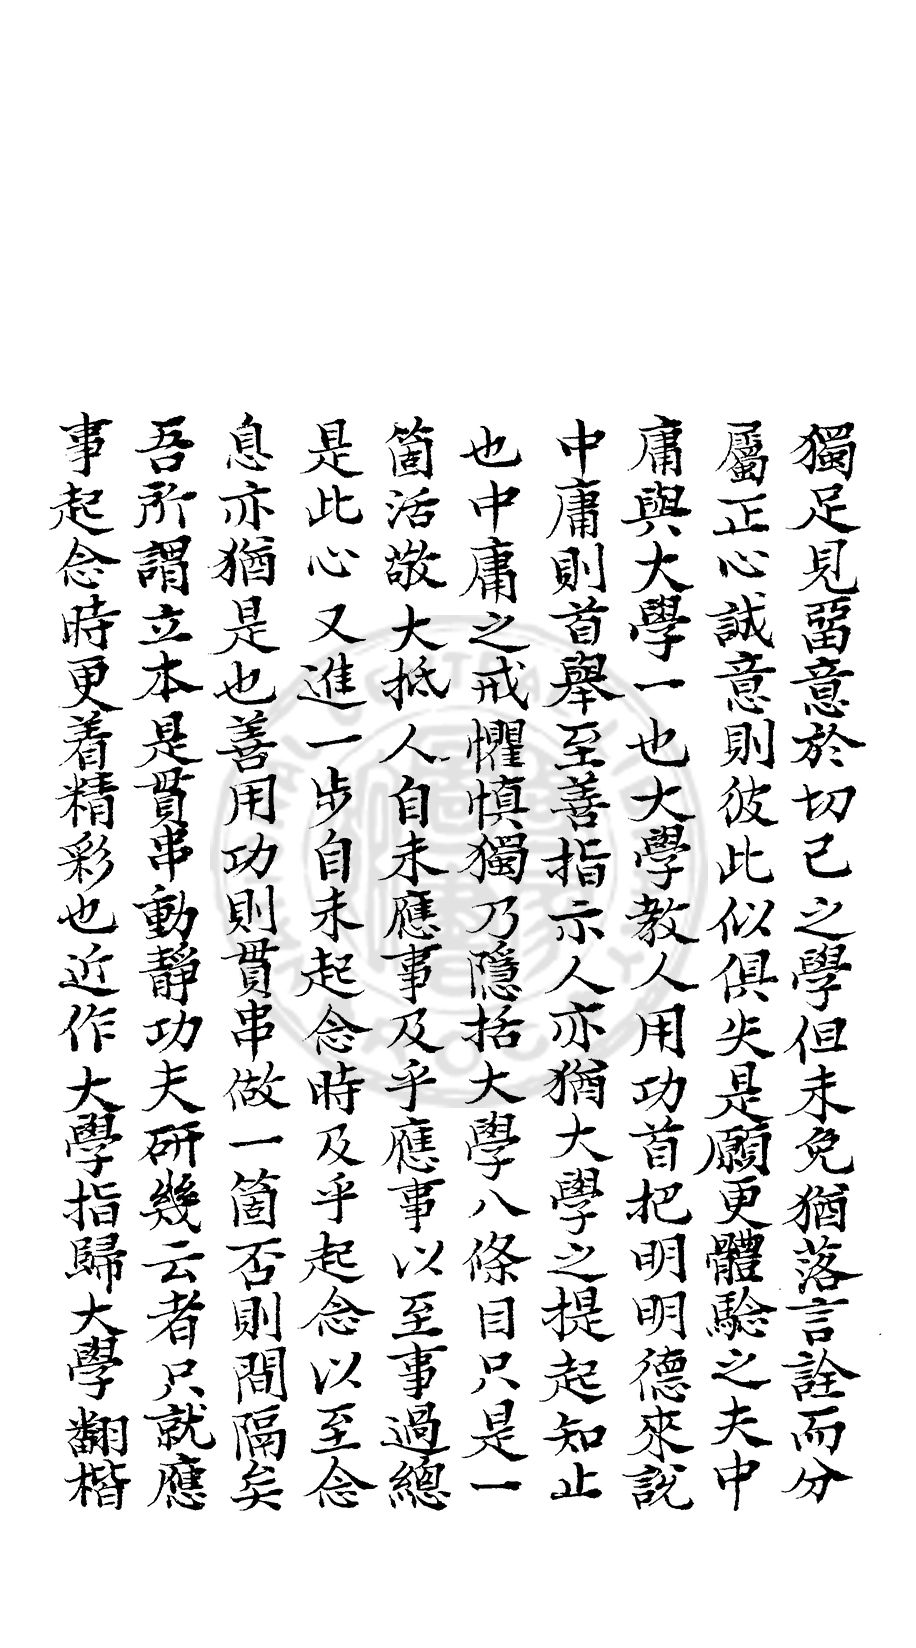 獨足見畱意於切己之學但未免猶落言詮而分
屬正心誠意則彼此似俱失是願更體驗之夫中
庸與大學一也大學教人用功首把明明德來說
中庸則首舉至善指示人亦猶大學之提起知止
也中庸之戒懼慎獨乃隱括大學八條目只是一
箇活敬大抵人自未應事及乎應事以至事過總
是此心又進一步自未起念時及乎起念以至念
息亦猶是也善用功則貫串做一箇否則間隔矣
吾所謂立本是貫串動靜功夫研幾云者只就應
事起念時更着精彩也近作大學指歸大學翻楷